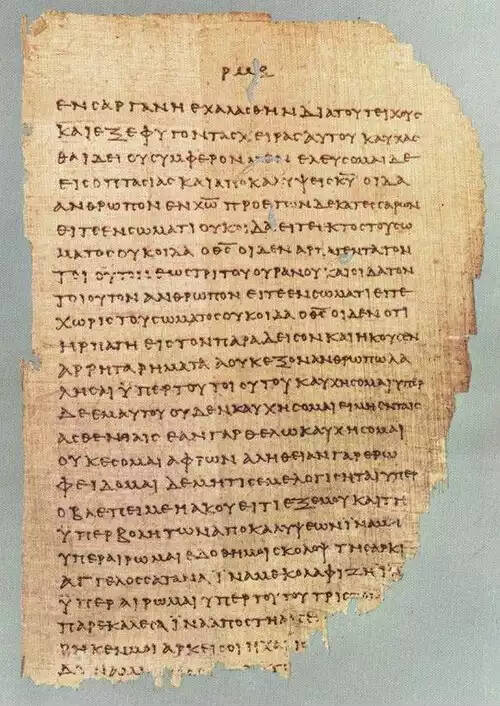 ΕΝ ΣΑΡΓΑΝΗ ΕΧΑΛΑΣΘΗΝ ΔΙΑ ΤΟΥ ΤΕΙΧΟΥΣ
ΚΑΙ ΕΞΕΦΥΓΟΝ ΤΑΣ ΧΕΙΡΑΣ ΑΥΤΟΥ ΚΑΥΧΑΣ
ΘΑΙ ΔΕΙ ΟΥ ΣΥΜΦΕΡΟΝ ΜΕΝ ΕΛΕΥΣΟΜΑΙ ΔΕ
ΕΙΣ ΟΠΤΑΣΙΑΣ ΚΑΙ ΑΠΟΚΑΛΥΨΕΙΣ ΚΥ ΟΙΔΑ
ΑΝΘΡΩΠΟΝ ΕΝ ΧΩ ΠΡΟ ΕΤΩΝ ΔΕΚΑΤΕΣΣΑΡΩΝ
ΕΙΤΕ ΕΝ ΣΩΜΑΤΙ ΟΥΚ ΟΙΔΑ ΕΙΤΕ ΕΚΤΟΣ ΤΟΥ ΣΩ
ΜΑΤΟΣ ΟΥΚ ΟΙΔΑ Ο ΘΣ ΟΙΔΕΝ ΑΡΠΑΓΕΝΤΑ ΤΟΝ
ΤΟΙΟΥΤΟΝ ΕΩΣ ΤΡΙΤΟΥ ΟΥΡΑΝΟΥ ΚΑΙ ΟΙΔΑ ΤΟΝ
ΤΟΙΟΥΤΟΝ ΑΝΘΡΩΠΟΝ ΕΙΤΕ ΕΝ ΣΩΜΑΤΙ ΕΙΤΕ
ΧΩΡΙΣ ΤΟΥ ΣΩΜΑΤΟΣ ΟΥΚ ΟΙΔΑ Ο ΘΣ ΟΙΔΕΝ ΟΤΙ
ΗΡΠΑΓΗ ΕΙΣ ΤΟΝ ΠΑΡΑΔΕΙΣΟΝ ΚΑΙ ΗΚΟΥΣΕΝ
ΑΡΡΗΤΑ ΡΗΜΑΤΑ Α ΟΥΚ ΕΞΟΝ ΑΝΘΡΩΠΩ ΛΑ
ΛΗΣΑΙ ΫΠΕΡ ΤΟΥ ΤΟΙΟΥΤΟΥ ΚΑΥΧΗΣΟΜΑΙ ΥΠΕΡ
ΔΕ ΕΜΑΥΤΟΥ ΟΥΔΕΝ ΚΑΥΧΗΣΟΜΑΙ ΕΙ ΜΗ ΕΝ ΤΑΙΣ
ΑΣΘΕΝΕΙΑΙΣ ΕΑΝ ΓΑΡ ΘΕΛΩ ΚΑΥΧΗΣΟΜΑΙ
ΟΥΚ ΕΣΟΜΑΙ ΑΦΡΩΝ ΑΛΗΘΕΙΑΝ ΓΑΡ ΕΡΩ
ΦΕΙΔΟΜΑΙ ΔΕ ΜΗ ΤΙΣ ΕΜΕ ΛΟΓΙΣΗΤΑΙ ΥΠΕΡ
Ο ΒΛΕΠΕΙ ΜΕ Η ΑΚΟΥΕΙ ΤΙ ΕΞ ΕΜΟΥ ΚΑΙ ΤΗ
ΫΠΕΡΒΟΛΗ ΤΩΝ ΑΠΟΚΑΛΥΨΕΩΝ ΪΝΑ ΜΗ
ΥΠΕΡΑΙΡΩΜΑΙ ΕΔΟΘΗ ΜΟΙ ΣΚΟΛΟΨ ΤΗ ΣΑΡΚΙ
ΑΓΓΕΛΟΣ ΣΑΤΑΝΑ ΪΝΑ ΜΕ ΚΟΛΑΦΙΖΗ ΪΝΑ
ΫΠΕΡΑΙΡΩΜΑΙ ΥΠΕΡ ΤΟΥΤΟΥ ΤΡΙΣ
ΠΑΡΕΚΑΛΕΣΑ ΪΝΑ ΑΠΟΣΤΗ
ΡΗΚΕΝ ΜΟΙ ΑΡΚΕΙ ΣΟΙ Η ΧΑΡΙΣ